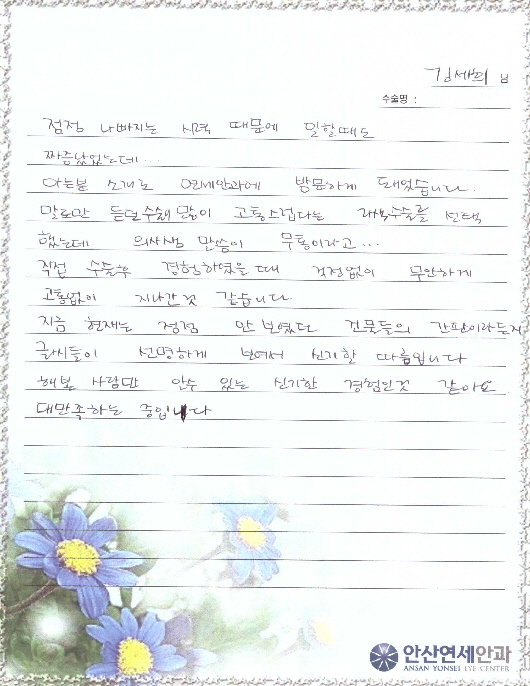 김세희 님
수술명 :
점점 나빠지는 시력 때문에 일할때도
짜증났었는데...
아는분 소개로 연세안과에 방문하게 되었습니다.
말로만 듣던 수술이 고통스럽다는 라식수술을 선택
했는데 의사샘 말씀이 무통이라고...
직접 수술후 경험하였을때 걱정없이 무안하게
고통없이 지나간것 같습니다
지금 현재는 점점 안보였던 건물들의 간판이라든지
글씨들이 선명하게 보여서 신기할 따름입니다
해본 사람만 알수 있는 신기한 경험인것 같아요
대만족하는 중입니다
안산연세안과
ANSAN YONSEI EYE CENTER